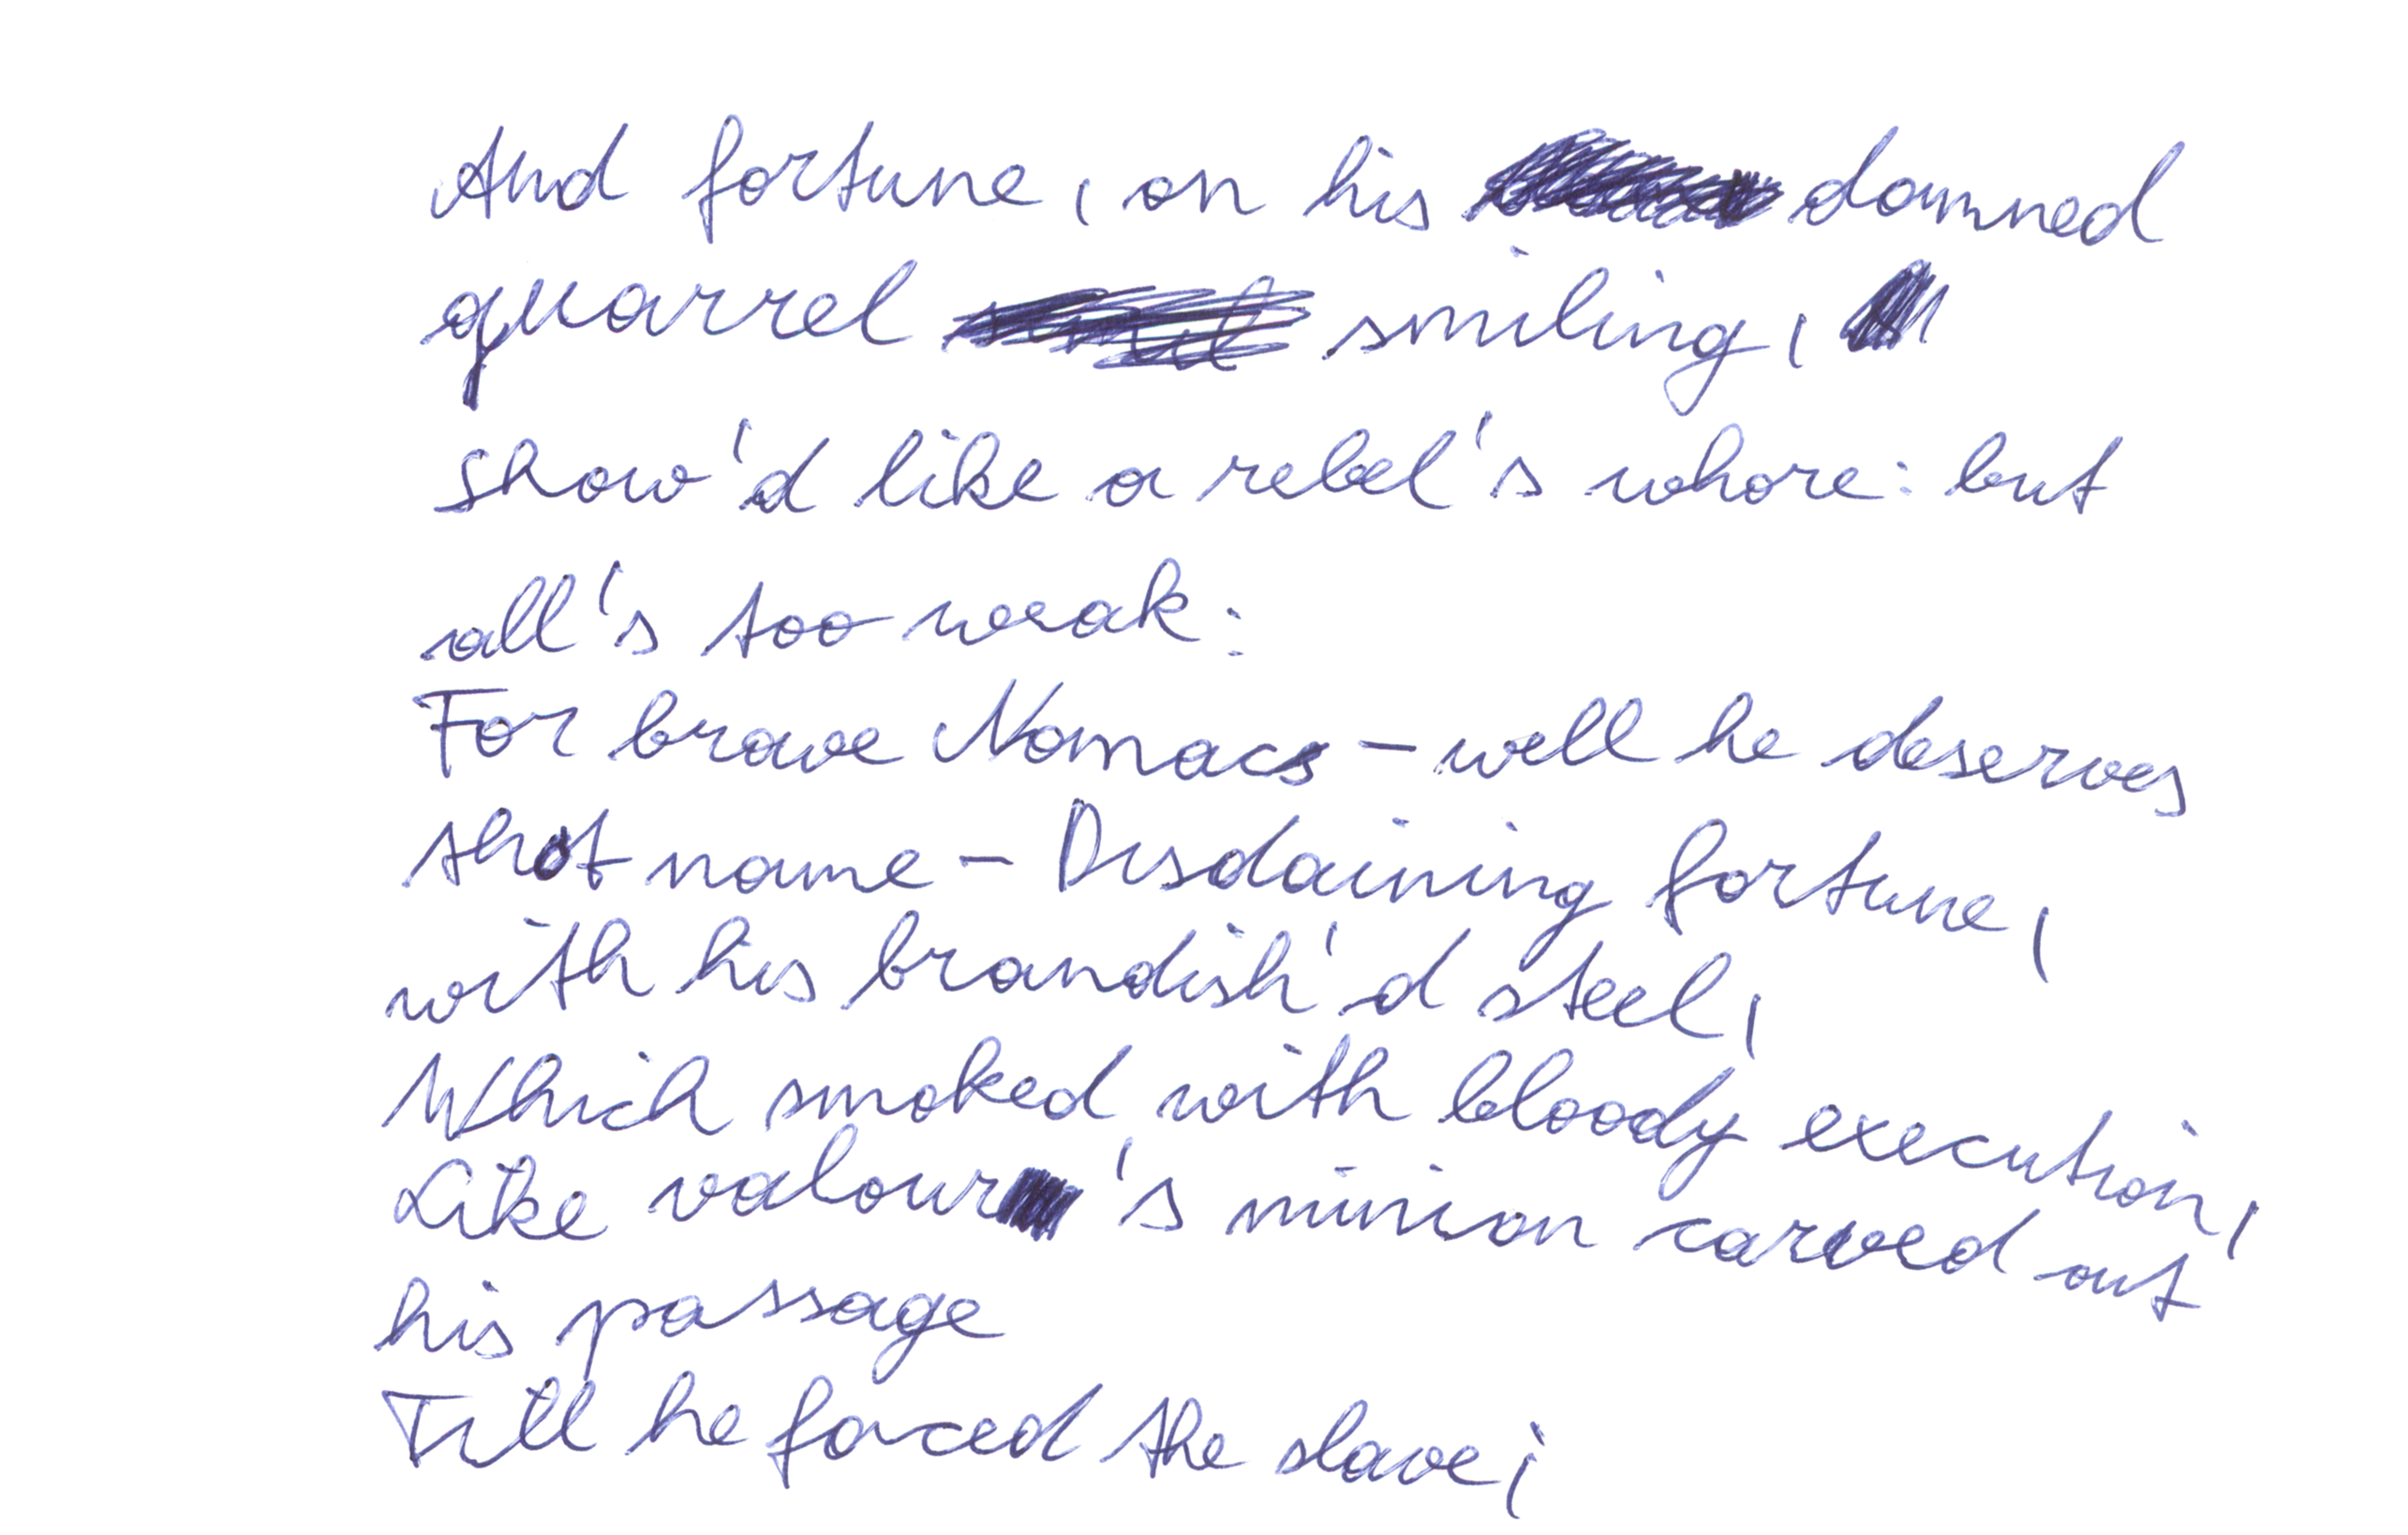 And fortune, on his damned
quarrel smiling,
show'd like a rebel's whore: but
all's too weak:
For brave Nomacs – well he deserves
that name – Disdaining fortune,
with his brandish'd steel,
Which smoked with bloody execution,
Like valour's minion carved out
his passage
Till he forced the slave;